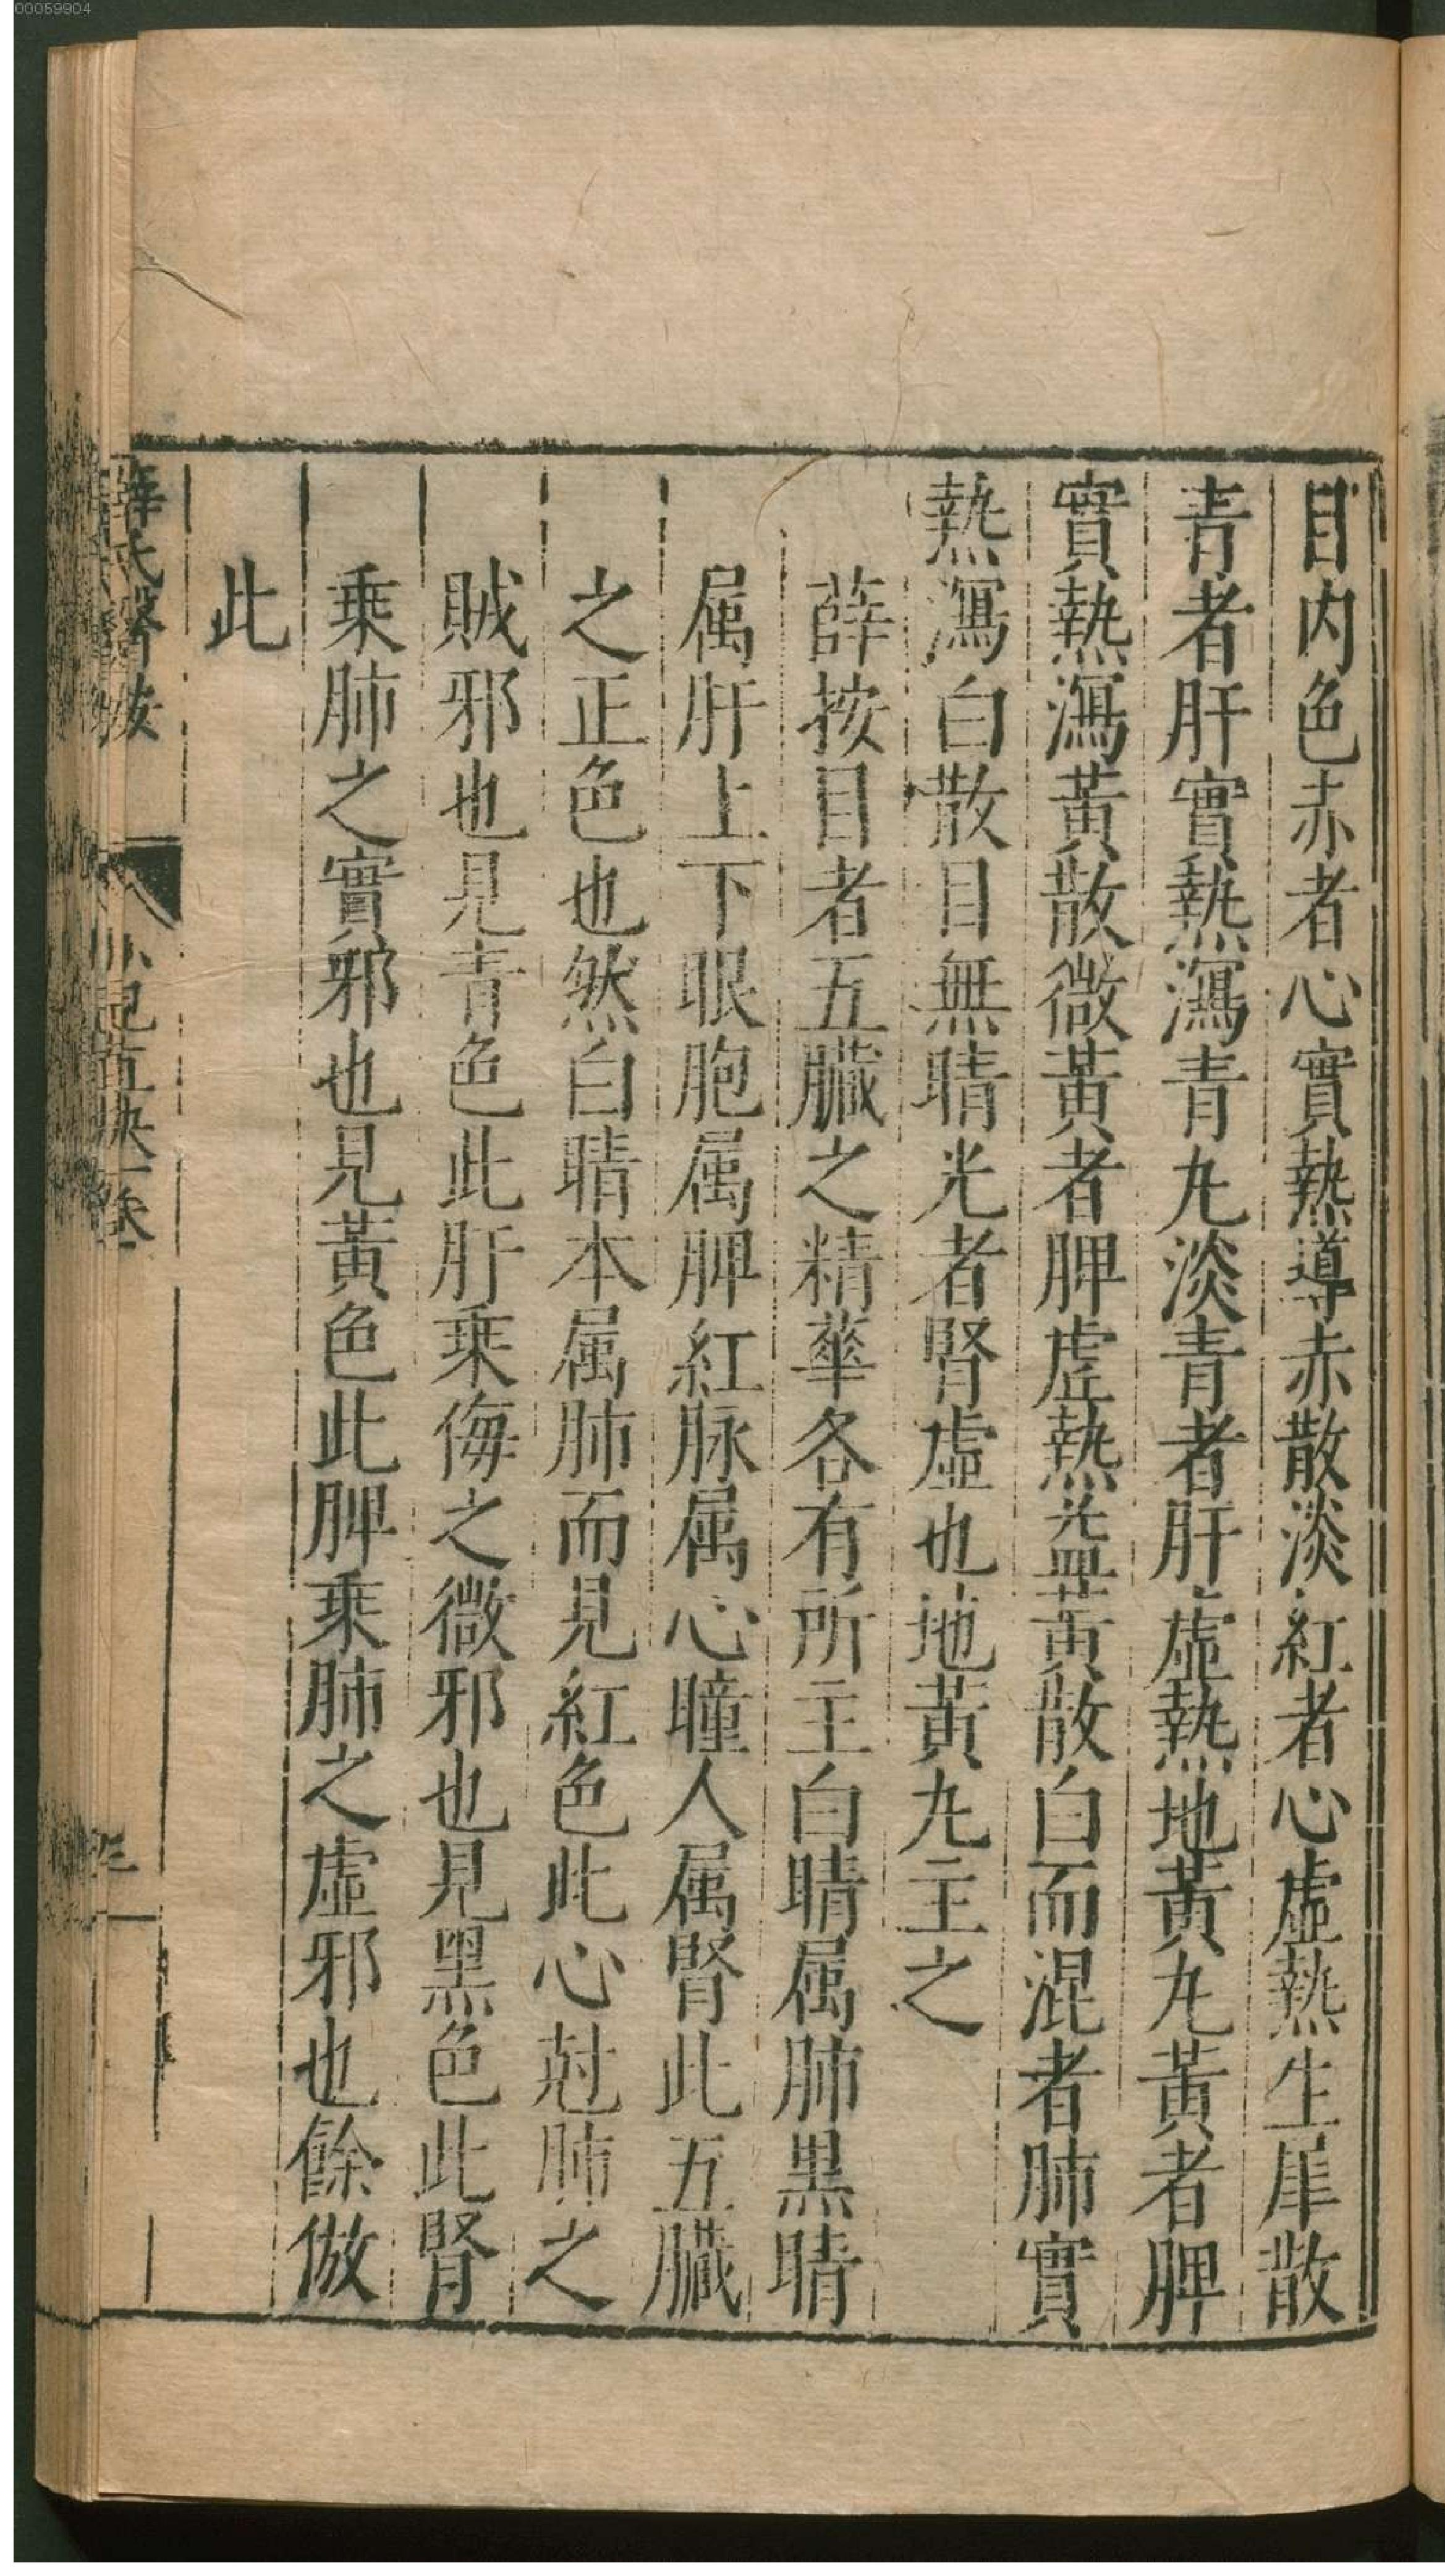 00059904
目内色赤者心實熱導赤散淡紅者心虛熱生犀散
青者肝實熱瀉青丸淡青者肝虛熱地黃丸黃者脾
實熱瀉黃散微黃者脾虛熱益黃散白而混者肺實
熱瀉白散目無睛光者腎虛也地黃丸主之
薛按目者五臟之精華各有所主白睛属肺黒睛
属肝上下眼胞属脾紅脉属心瞳人属腎此五臟
之正色也然白睛本属肺而見紅色此心尅肺之
賊邪也見青色此肝乗侮之微邪也見黑色此腎
乗肺之實邪也見黃色此脾乗肺之虛邪也餘倣
此
薛氏醫按
小兒直訣一卷
三